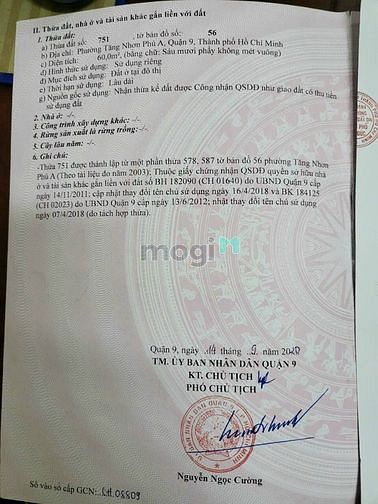 II. Thửa đất, nhà ở và tài sản khác gắn liền với đất
1. Thửa đất:
a) Thửa đất số: 751 , tờ bản đồ số: 56
b) Địa chỉ: Phường Tăng Nhơn Phú A, Quận 9, Thành phố Hồ Chí Minh
c) Diện tích: 60,0m², (bằng chữ: Sáu mươi phẩy không mét vuông)
d) Hình thức sử dụng: Sử dụng riêng
đ) Mục đích sử dụng: Đất ở tại đô thị
e) Thời hạn sử dụng: Lâu dài
g) Nguồn gốc sử dụng: Nhận thừa kế đất được Công nhận QSDĐ như giao đất có thu tiền
sử dụng đất
2. Nhà ở: -/-.
3. Công trình xây dựng khác: -/-.
4. Rừng sản xuất là rừng trồng: -/-.
5. Cây lâu năm: -/-.
6. Ghi chú:
-Thửa 751 được thành lập từ một phần thửa 578, 587 tờ bản đồ 56 phường Tăng Nhơn
Phú A (Theo tài liệu đo năm 2003); Thuộc giấy chứng nhận QSDĐ quyền sở hữu nhà
ở và tài sản khác gắn liền với đất số BH 182090 (CH 01640) do UBND Quận 9 cấp
ngày 14/11/2011; cập nhật thay đổi tên chủ sử dụng ngày 16/4/2018 và BK 184125
(CH 02023) do UBND Quận 9 cấp ngày 13/6/2012; nhật thay đổi tên chủ sử dụng
ngày 07/4/2018 (do tách hợp thửa).
mogi
Quận 9, ngày 14 tháng 9 năm 2018
TM. ỦY BAN NHÂN DÂN QUẬN 9
KT. CHỦ TỊCH
PHÓ CHỦ TỊCH
Nguyễn Ngọc Cường
Số vào sổ cấp GCN: CH.08809